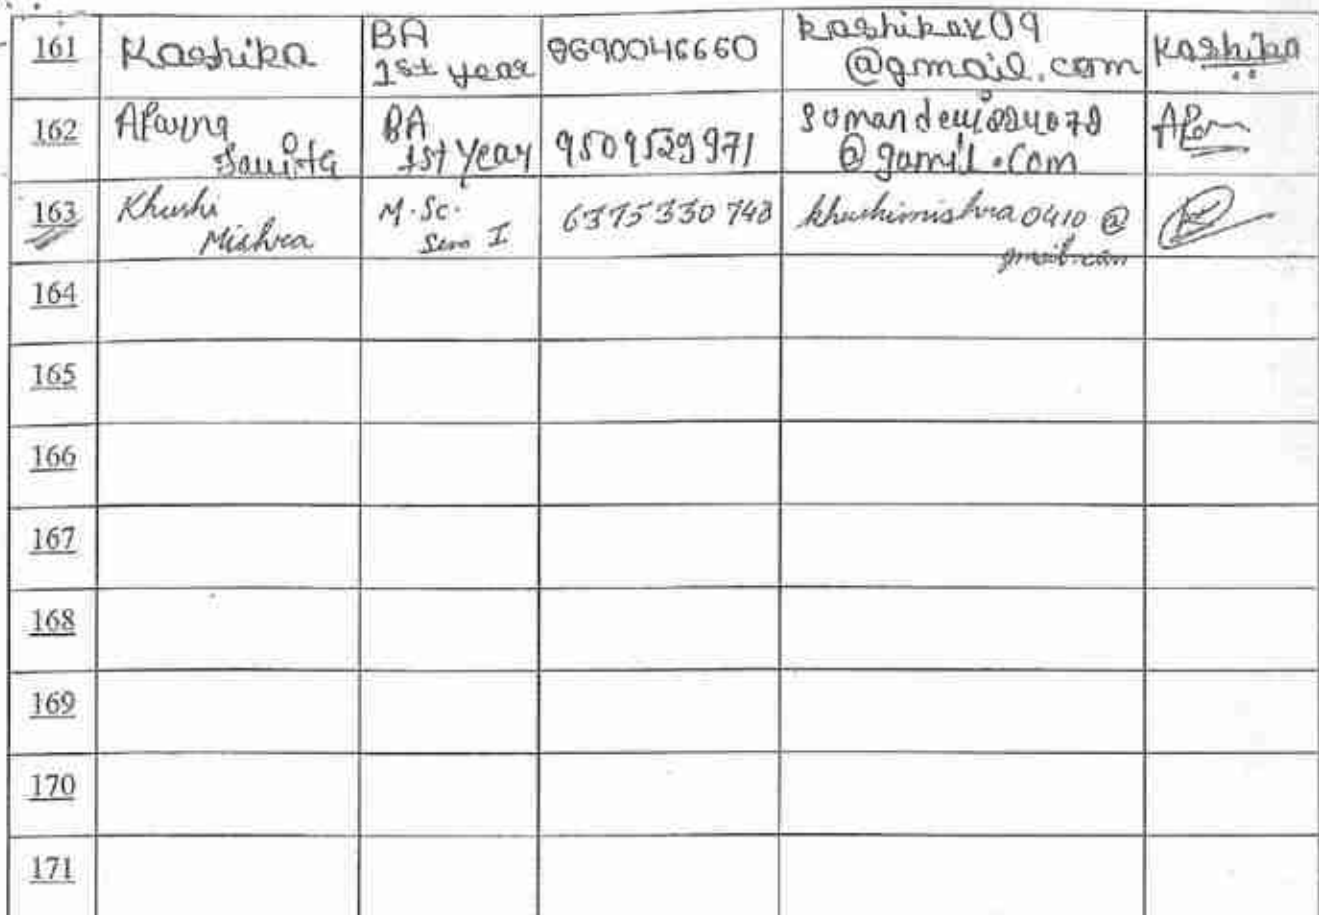 161 Kashika BA 1st year 8690046660 kashikax09 @gmail.com Kashika
162 Aparna Savita BA 1st Year 9509529971 @gamil.com
163 Khushi Mishra M.Sc. Sem I 6375330748 khushimishra0410@ gmail.com
164
165
166
167
168
169
170
171